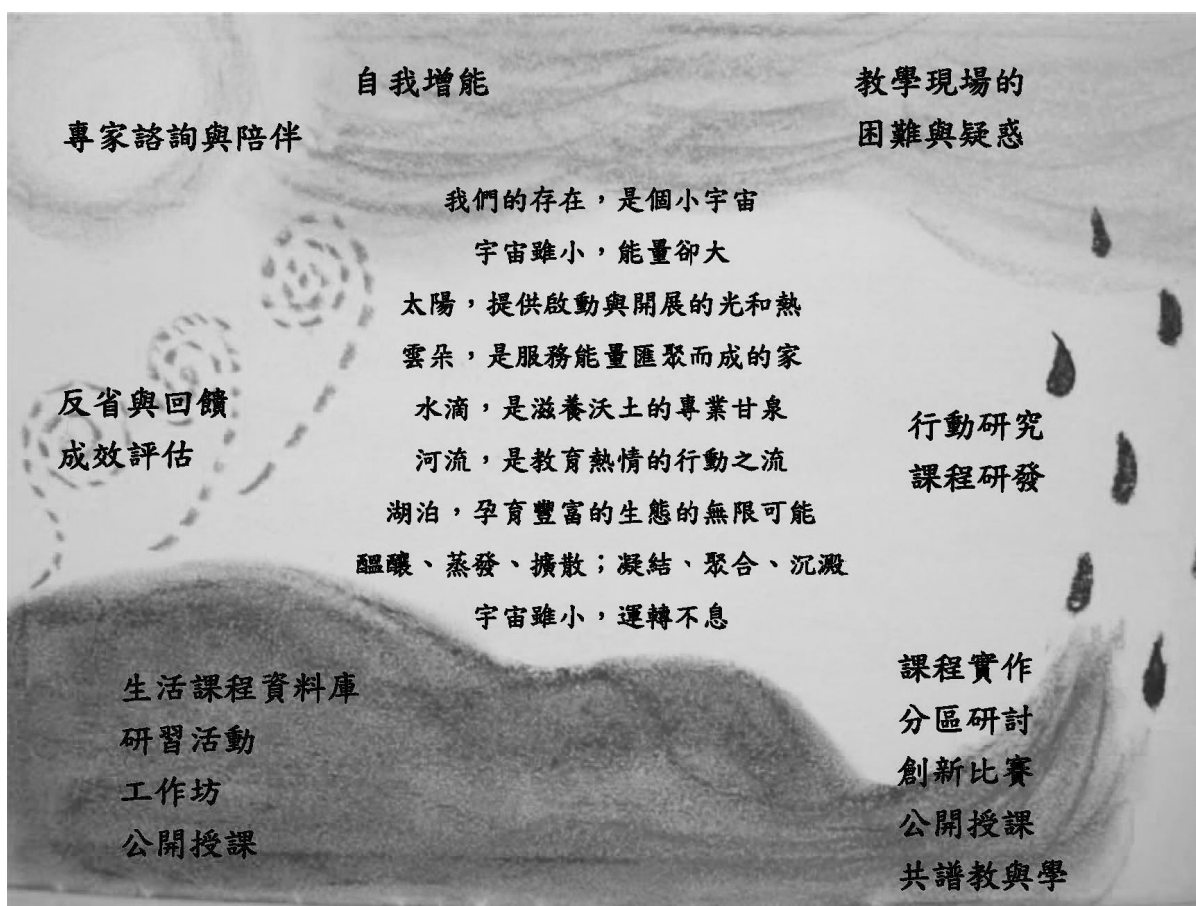 自我增能
專家諮詢與陪伴
教學現場的
困難與疑惑
我們的存在，是個小宇宙
宇宙雖小，能量卻大
太陽，提供啟動與開展的光和熱
雲朵，是服務能量匯聚而成的家
水滴，是滋養沃土的專業甘泉
河流，是教育熱情的行動之流
湖泊，孕育豐富的生態的無限可能
醞釀、蒸發、擴散；凝結、聚合、沉澱
宇宙雖小，運轉不息
反省與回饋
成效評估
行動研究
課程研發
生活課程資料庫
研習活動
工作坊
公開授課
課程實作
分區研討
創新比賽
公開授課
共譜教與學